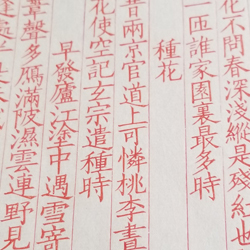 花不問春深淺縱是殘紅也
一匝誰家園裏最多時
種花
昔兩京官道上可憐桃李晝
花使空記玄宗遣種時
早發廬江塗中遇雪寄
聲多鴈滿陂濕雲連野見